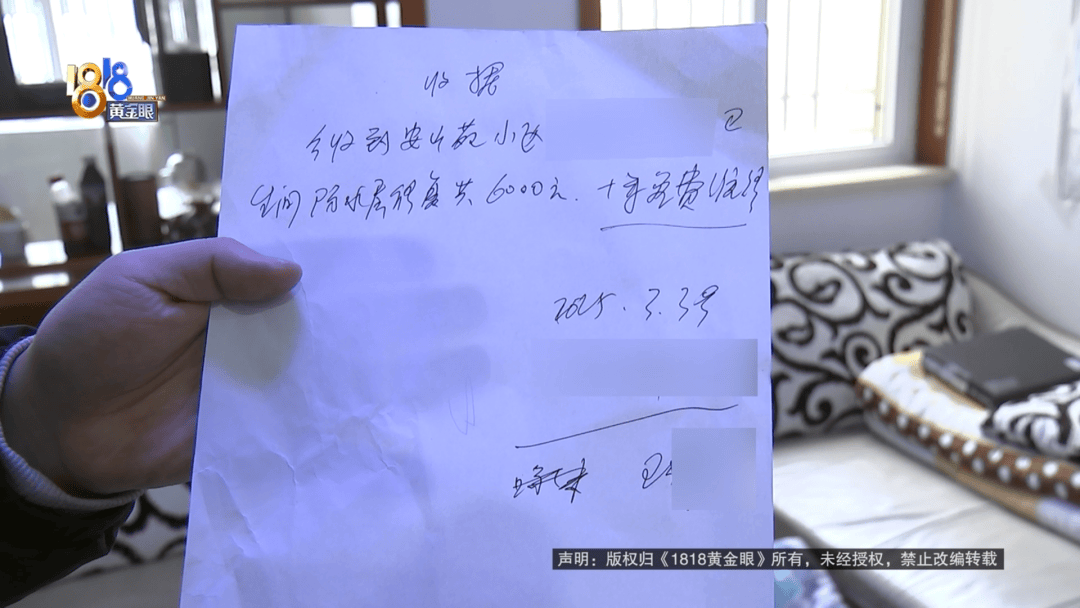 1818
HUANG JIN YAN
黄金眼
收据
今收到安山苑小区 卫
生间防水层修复共6000元. 十年免费维修
2025.3.3号
声明：版权归《1818黄金眼》所有，未经授权，禁止改编转载